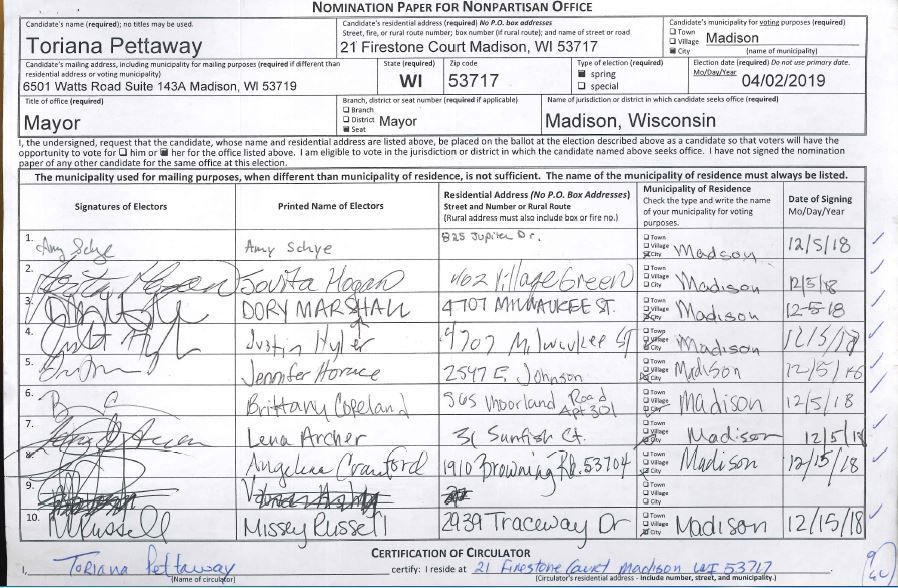 NOMINATION PAPER FOR NONPARTISAN OFFICE
Candidate's name (required); no titles may be used.
Toriana Pettaway
Candidate's residential address (required) No P.O. box addresses
Street, fire, or rural route number; box number (if rural route); and name of street or road
21 Firestone Court Madison, WI 53717
Candidate's municipality for voting purposes (required)
Town
Village
City
Madison
(name of municipality)
Candidate's mailing address, including municipality for mailing purposes (required if different than
residential address or voting municipality)
6501 Watts Road Suite 143A Madison, WI 53719
State (required)
WI
Zip code
53717
Type of election (required)
spring
special
Election date (required) Do not use primary date.
Mo/Day/Year
04/02/2019
Title of office (required)
Mayor
Branch, district or seat number (required if applicable)
Branch
District
Seat
Mayor
Name of jurisdiction or district in which candidate seeks office (required)
Madison, Wisconsin
I, the undersigned, request that the candidate, whose name and residential address are listed above, be placed on the ballot at the election described above as a candidate so that voters will have the
opportunity to vote for him or her for the office listed above. I am eligible to vote in the jurisdiction or district in which the candidate named above seeks office. I have not signed the nomination
paper of any other candidate for the same office at this election.
The municipality used for mailing purposes, when different than municipality of residence, is not sufficient. The name of the municipality of residence must always be listed.
Signatures of Electors
Printed Name of Electors
Residential Address (No P.O. Box Addresses)
Street and Number or Rural Route
(Rural address must also include box or fire no.)
Municipality of Residence
Check the type and write the name
of your municipality for voting
purposes.
Date of Signing
Mo/Day/Year
1. Amy Schye Amy Schye 825 Jupiter Dr. Town Village City Madison 12/5/18
2. Jovita Hogan 462 Village Green Town Village City Madison 12/5/18
3. DORY MARSHALL 4707 MILWAUKEE ST. Town Village City Madison 12-5-18
4. Justin Hyler 4707 Milwaukee ST Town Village City Madison
5. Jennifer Horace 2547 E. Johnson Town Village City Madison 12/5/18
6. Brittany Copeland 505 Moorland Road Apt 301 Town Village City Madison 12/5/18
7. Lena Archer 31 Sunfish Ct. Town Village City Madison 12/5/18
8. Angelina Crawford 1910 Browning Rd. 53704 Town Village City Madison 12/15/18
9. Town Village City
10. M Russell Missey Russell 2939 Traceway Dr Town Village City Madison 12/15/18
CERTIFICATION OF CIRCULATOR
I, Toriana Pettaway certify: I reside at 21 Firestone Court Madison WI 53717
(Name of circulator)
(Circulator's residential address - Include number, street, and municipality.)